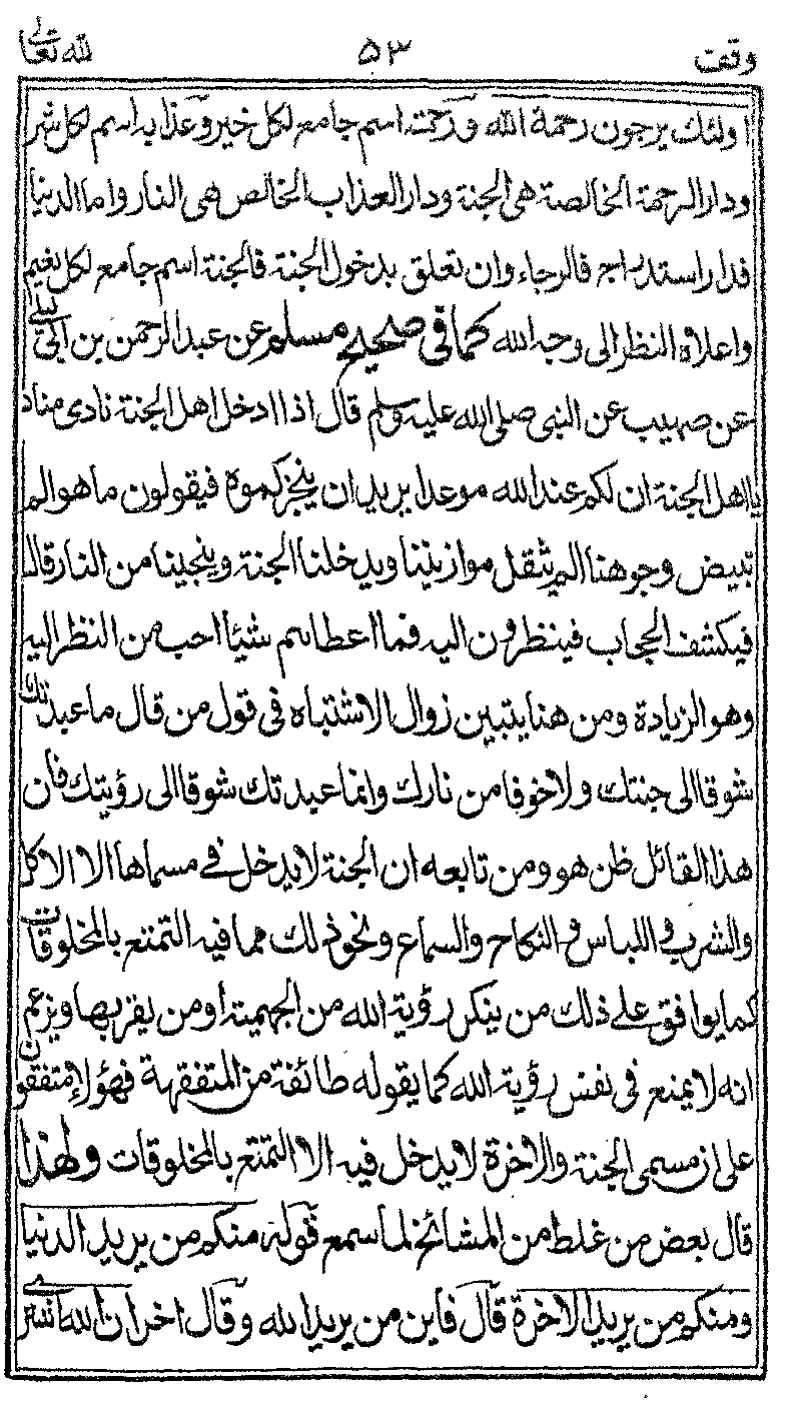 وقف ٥٣ لله تعالى
اولئك يرجون رحمة الله ورحمته اسم جامع لكل خير وعذابه اسم لكل شر
ودار الرحمة الخالصة هى الجنة ودار العذاب الخالص هى النار واما الدنيا
فدار استدراج فالرجاء وان تعلق بدخول الجنة فالجنة اسم جامع لكل نعيم
واعلاه النظر الى وجه الله كما فى صحيح مسلم عن عبد الرحمن بن ابى ليلى
عن صهيب عن النبى صلى الله عليه وسلم قال اذا ادخل اهل الجنة نادى مناد
يا اهل الجنة ان لكم عند الله موعدا يريد ان ينجزكموه فيقولون ما هو الم
تبيض وجوهنا الم يثقل موازيننا ويدخلنا الجنة وينجينا من النار قال
فيكشف الحجاب فينظرون اليه فما اعطاهم شيئا احب من النظر اليه
وهو الزيادة ومن هنا يتبين زوال الاشتباه فى قول من قال ما عبدتك
شوقا الى جنتك ولا خوفا من نارك وانما عبدتك شوقا الى رؤيتك فان
هذا القائل ظن هو ومن تابعه ان الجنة لا يدخل فى مسماها الا الاكل
والشرب واللباس والنكاح والسماع ونحو ذلك مما فيه التمتع بالمخلوقات
كما يوافق على ذلك من ينكر رؤية الله من الجهمية او من يقر بها ويزعم
انه لا يمنع فى نفس رؤية الله كما يقوله طائفة من المتفقهة فهؤلاء متفقون
على ان مسمى الجنة والاخرة لا يدخل فيه الا التمتع بالمخلوقات ولهذا
قال بعض من غلط من المشائخ لما سمع قوله منكم من يريد الدنيا
ومنكم من يريد الاخرة قال فاين من يريد الله وقال اخر ان الله اشترى